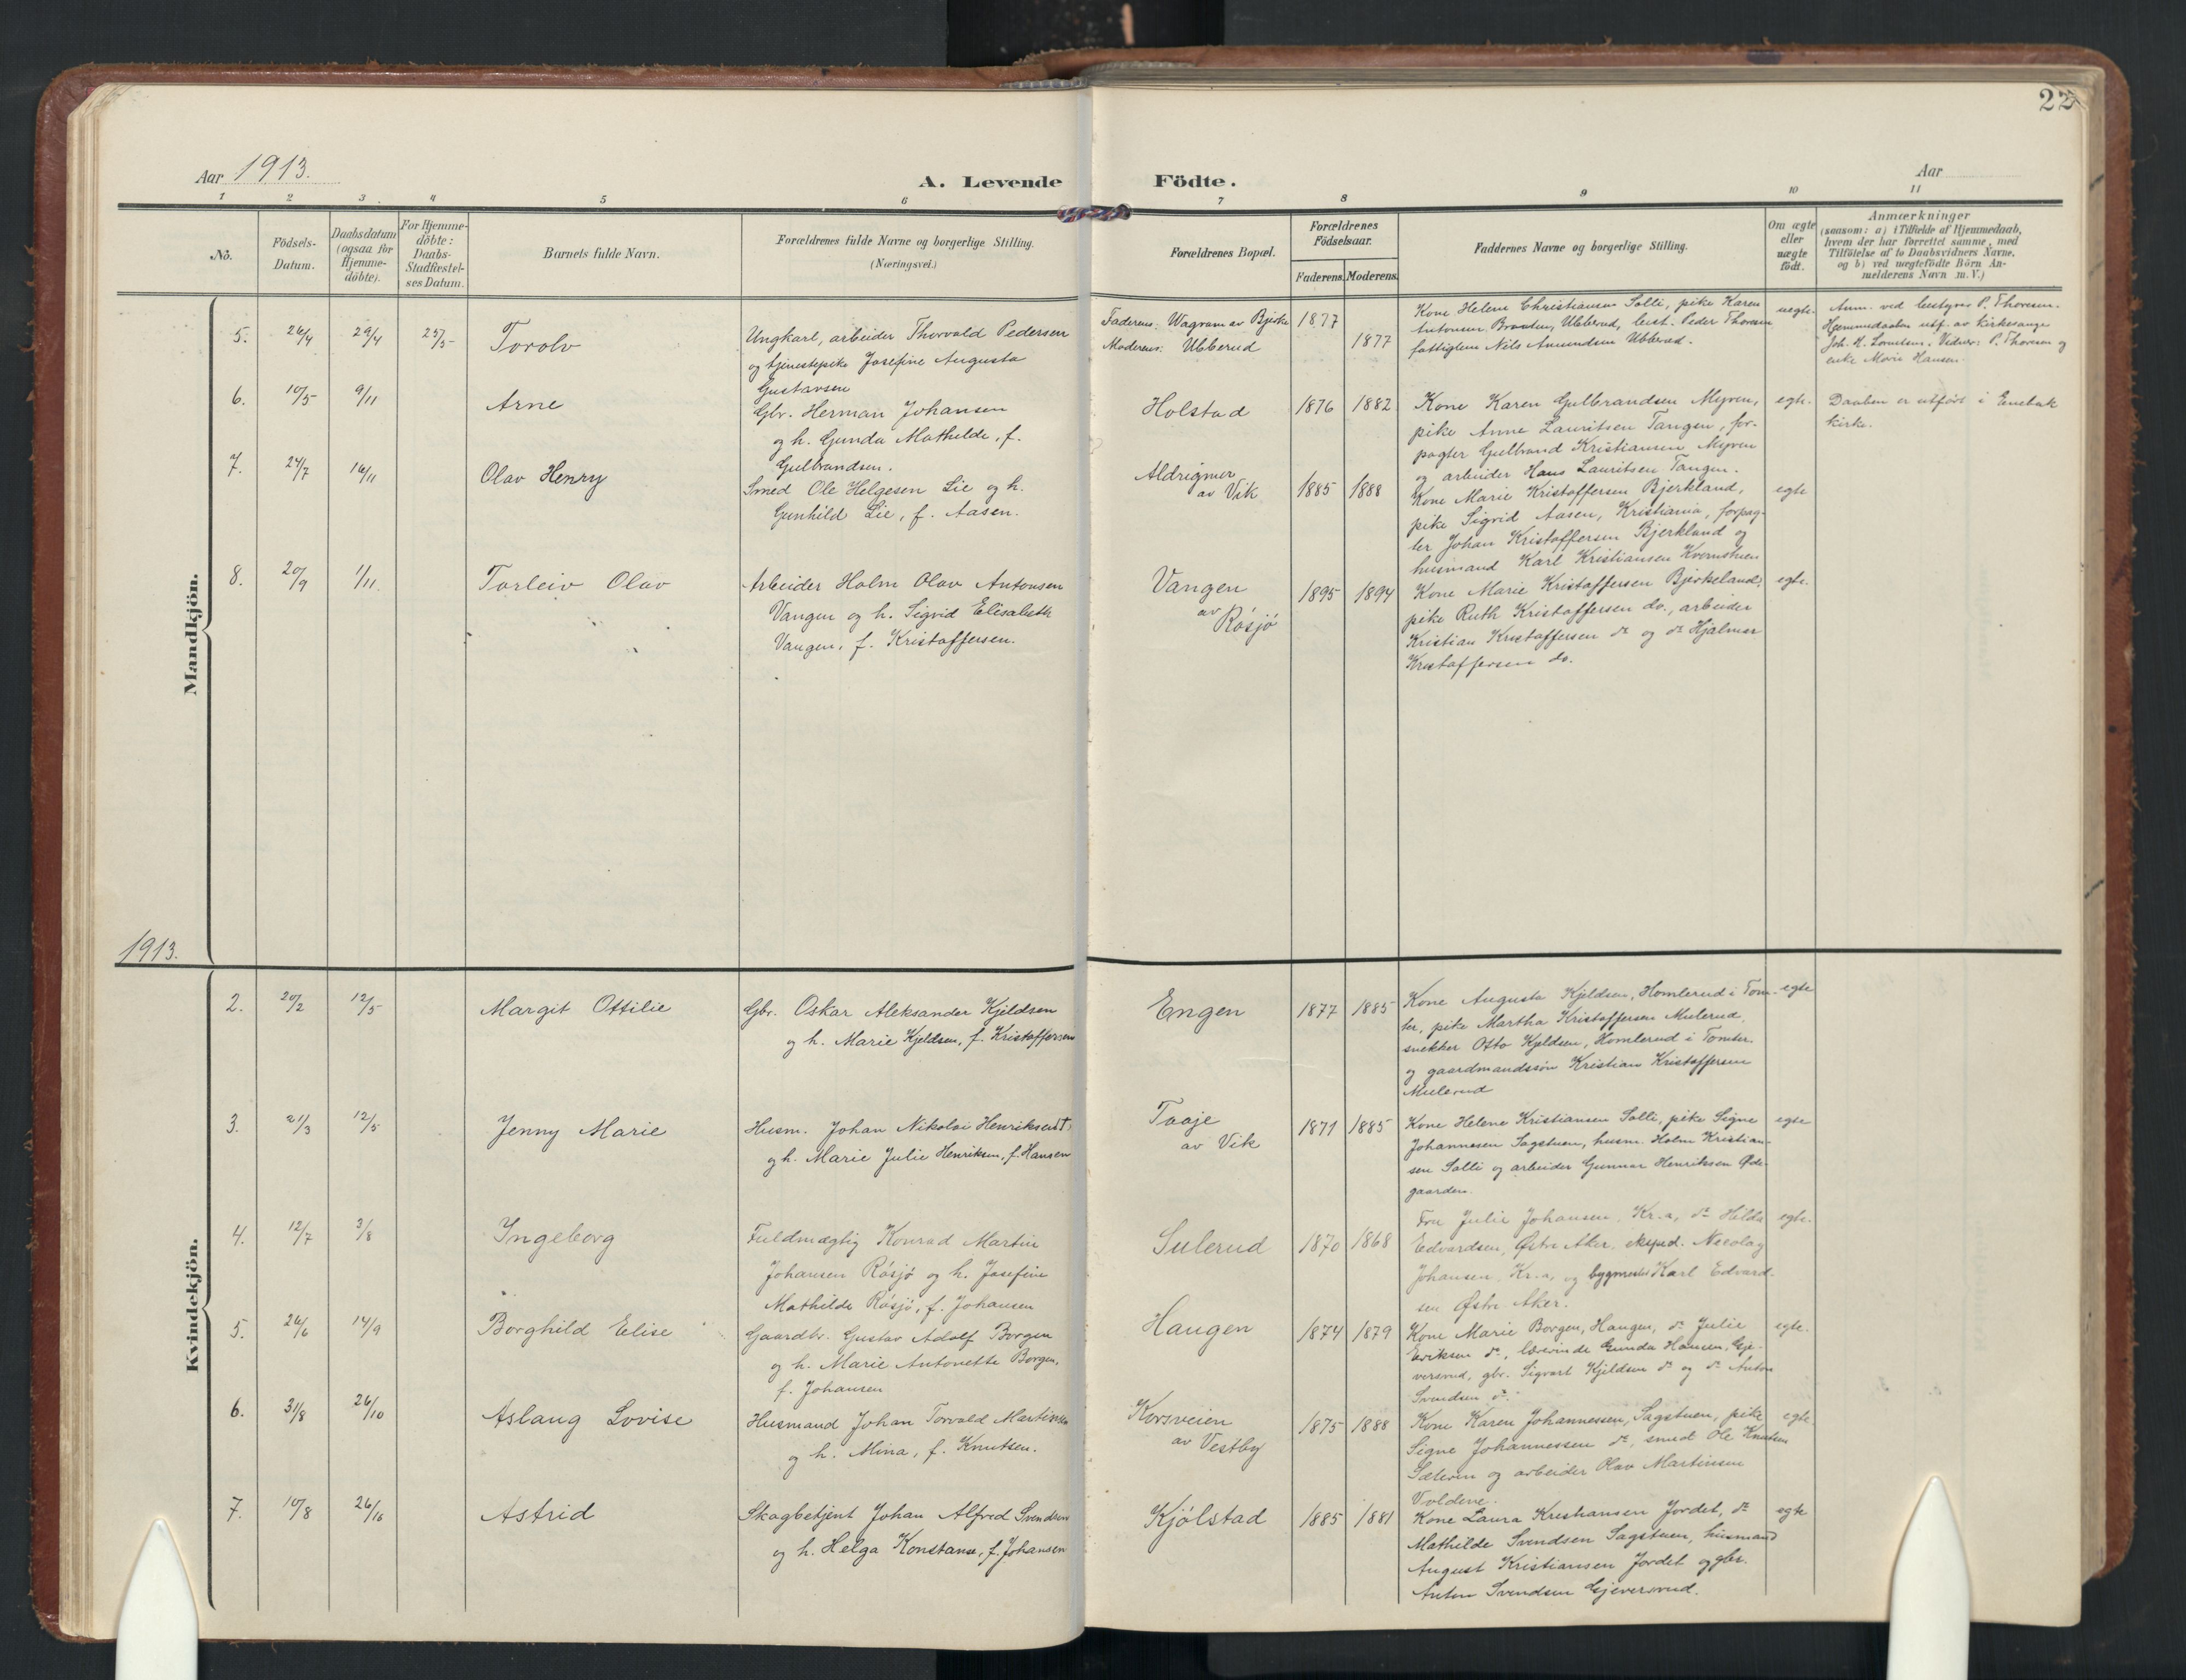 22
Aar 1913.
A. Levende Födte.
Aar
1 2 3 4 5 6 7 8 9 10 11
No.
Födsels-
Datum.
Daabsdatum
(ogsaa for
Hjemme-
döbte).
For Hjemme-
döbte:
Daabs-
Stadfæstel-
ses Datum.
Barnets fulde Navn.
Forældrenes fulde Navne og borgerlige Stilling.
(Næringsvei.)
Forældrenes Bopæl.
Forældrenes
Födselsaar.
Faderens. Moderens.
Faddernes Navne og borgerlige Stilling.
Om ægte
eller
uægte
födt.
Anmærkninger
(saasom: a) i Tilfælde af Hjemmedaab,
hvem der har forrettet samme, med
Tilföielse af to Daabsvidners Navne,
og b) ved uægtefödte Börn An-
melderens Navn m.V.)
Mandkjön.
5. 26/4 29/4 25/5 Torolv
Ungkarl, arbeider Thorvald Pedersen
og tjenestepike Josefine Augusta
Gustavsen
Faderens: Wagram av Bjerke 1877
Moderens: Ubberud 1877
Kone Helene Christiansen Solli, pike Karen
Antonsen Braaten, Ubberud, best. Peder Thoresen
fattiglem Nils Amundsen Ubberud.
uegte.
Anm. ved bestyrer P. Thoresen.
Hjemmedaaben utf. av kirkesanger
Joh. H. Vidner: P. Thoresen og
enke Marie Hansen.
6. 10/5 9/11 Arne
Gbr. Herman Johansen
og h. Gunda Mathilde, f.
Gulbrandsen.
Holstad 1876 1882
Kone Karen Gulbrandsen Myren,
pike Anne Lauritsen Tangen, for-
pagter Gulbrand Kristiansen Myren
og arbeider Hans Lauritsen Tangen.
egte.
Daaben er utfört i Enebak
kirke.
7. 24/7 16/11 Olav Henry
Smed Ole Helgesen Lie og h.
Gunhild Lie, f. Aasen.
Aldrigmer
av Vik 1885 1888
Kone Marie Kristoffersen Bjerkland,
pike Sigrid Aasen, Kristiania, forpag-
ter Johan Kristoffersen Bjerkland og
husmand Karl Kristiansen Kvernstuen
egte
8. 20/9 1/11. Torleiv Olav
Arbeider Holm Olav Antonsen
Vangen og h. Sigrid Elisabeth
Vangen, f. Kristoffersen.
Vangen
av
Rösjö 1895 1894
Kone Marie Kristoffersen Bjerkeland,
pike Ruth Kristoffersen do., arbeider
Kristian Kristoffersen do og do Hjalmar
Kristoffersen do.
egte.
1913.
Kvindekjön.
2. 20/2 12/5 Margit Ottilie
Gbr. Oskar Aleksander Kjeldsen
og h. Marie Kjeldsen, f. Kristoffersen
Engen 1877 1885
Kone Augusta Kjeldsen, Homlerud i Tom-
ter, pike Martha Kristoffersen Mulerud,
snekker Otto Kjeldsen, Homlerud i Tomter.
og gaardmandssön Kristian Kristoffersen
Mulerud
egte
3. 21/3 12/5 Jenny Marie
Husm. Johan Nikolai Henriksen T.
og h. Marie Julie Henriksen, f. Hansen
Taaje
av Vik 1871 1885
Kone Helene Kristiansen Solli, pike Signe
Johannesen Sagstuen, husm. Holm Kristian-
sen Solli og arbeider Gunnar Henriksen Øde-
gaarden.
egte
4. 12/7 3/8 Ingeborg
Fuldmægtig Konrad Martin
Johansen Rösjö og h. Josefine
Mathilde Rösjö, f. Johansen
Sulerud 1870 1868
Fru Julie Johansen, Kr.a, do Hilda
Edvardsen, Østre Aker, eksped. Nicolay
Johansen, Kr.a, og bygmester Karl Edvard-
sen Østre Aker.
egte.
5. 26/6 14/9 Borghild Elise
Gaardbr. Gustav Adolf Borgen
og h. Marie Antonette Borgen,
f. Johansen
Haugen 1874 1879
Kone Marie Borgen, Haugen, do Julie
Eriksen do, lærerinde Gunda Hansen, Gje-
versrud, gbr. Sigvart Kjeldsen do og do Anton
Svendsen do.
egte.
6. 31/8 26/10 Aslaug Lovise
Husmand Johan Torvald Martinsen
og h. Mina, f. Knutsen.
Korsveien
av Vestby 1875 1888
Kone Karen Johannessen, Sagstuen, pike
Signe Johannessen do, smed Ole Knutsen
Sæteren og arbeider Olav Martinsen
Voldene.
egte
7. 10/8 26/10 Astrid
Skogbetjent Johan Alfred Svendsen
og h. Helga Konstanse, f. Johansen
Kjölstad 1885 1881
Kone Laura Kristiansen Jordet, do
Mathilde Svendsen Sagstuen, husmand
August Kristiansen Jordet og gbr.
Anton Svendsen Gjeversrud.
egte